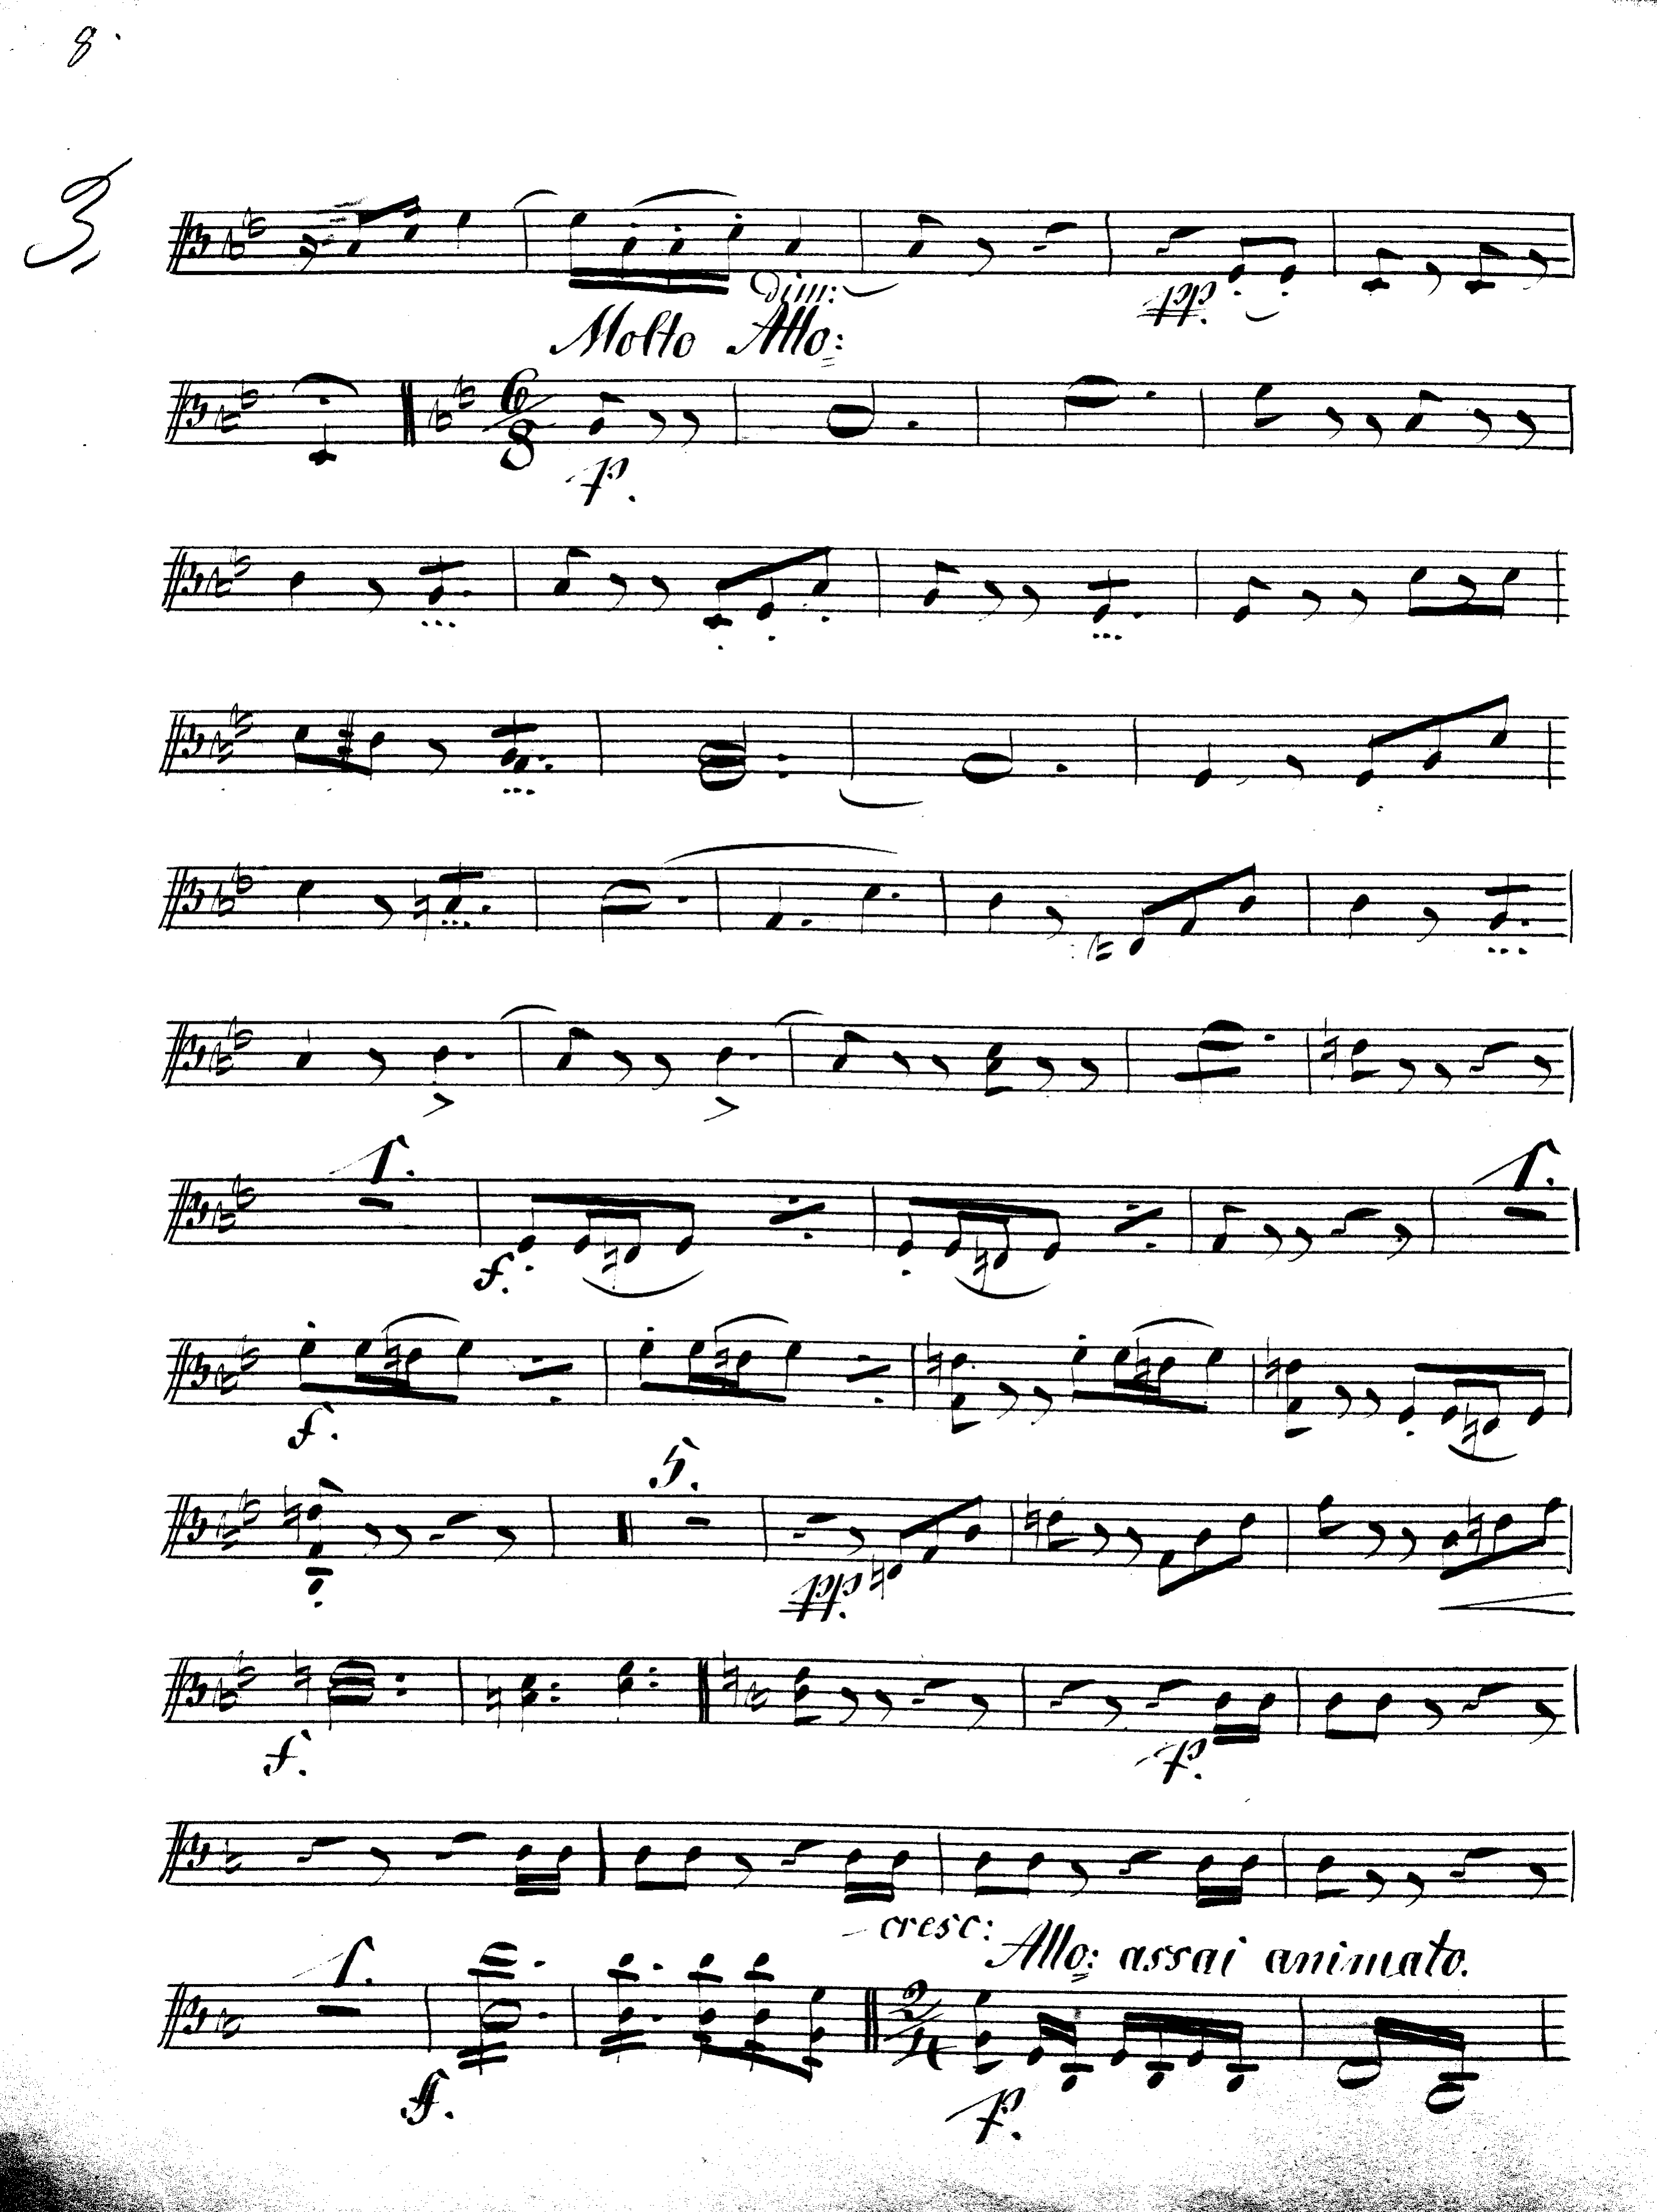 8.
3,
dim:
pp.
Molto Allo:
6
8
p.
1.
1.
f.
f.
5.
pp.
f.
p.
cresc:
Allo: assai animato.
1.
2
4
ff.
p.